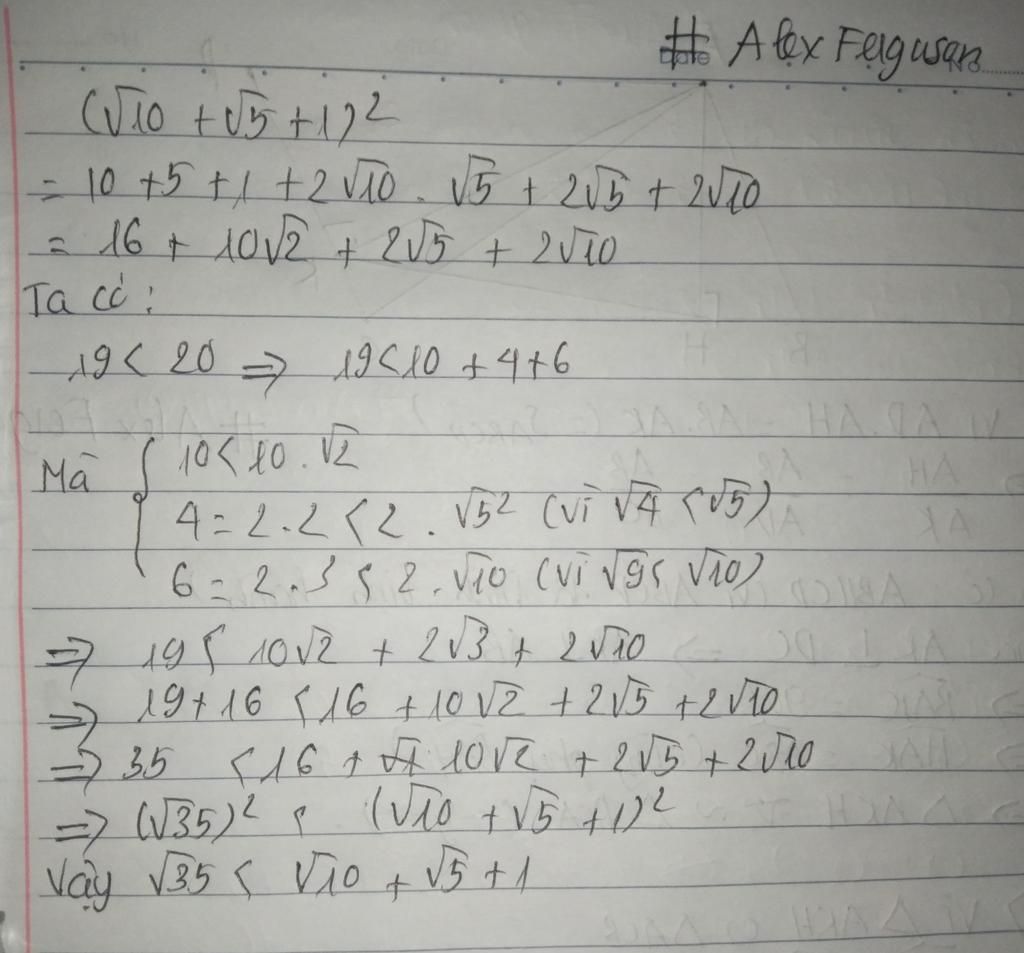 # Alex Ferguson
(√10 + √5 + 1)²
= 10 + 5 + 1 + 2√10 . √5 + 2√5 + 2√10
= 16 + 10√2 + 2√5 + 2√10
Ta có :
19 < 20 => 19 < 10 + 4 + 6
Mà { 10 < 10 . √2
4 = 2 . 2 < 2 . √5² (vì √4 < √5)
6 = 2 . 3 < 2 . √10 (vì √9 < √10)
=> 19 < 10√2 + 2√3 + 2√10
=> 19 + 16 < 16 + 10√2 + 2√5 + 2√10
=> 35 < 16 + 10√2 + 2√5 + 2√10
=> (√35)² < (√10 + √5 + 1)²
Vậy √35 < √10 + √5 + 1